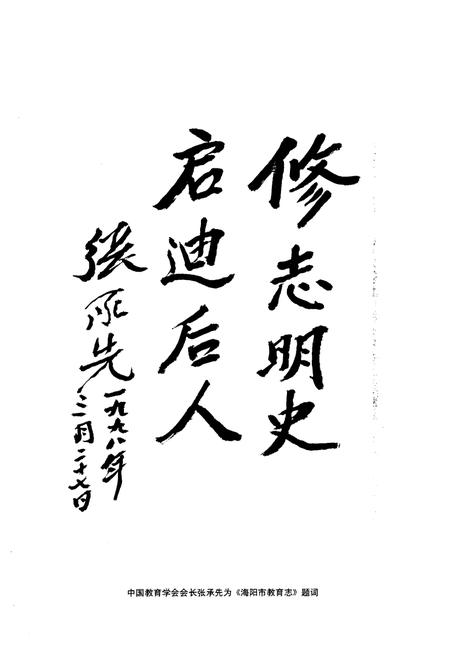 修志明史
启迪后人
张承先
一九九八年
三月二十七日
中国教育学会会长张承先为《海阳市教育志》题词